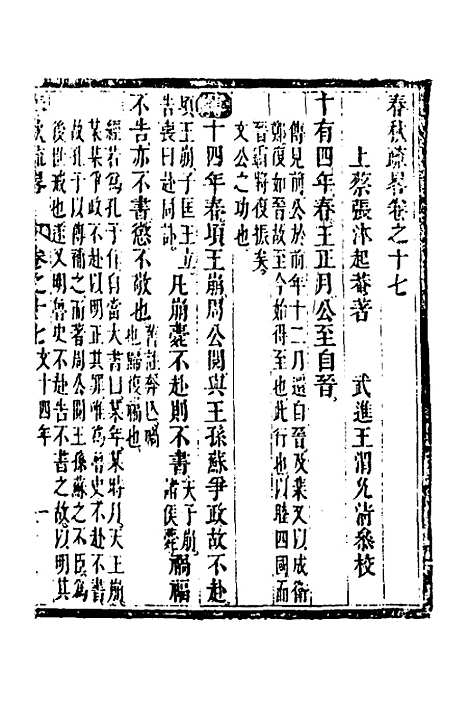 春秋疏畧卷之十七
上蔡張沐起菴著　武進王渭允清參校
十有四年春王正月公至自晉
傳見前公於前年十二月還自晉及棐又以成衛
鄭復如晉故至今始得至也此行也以睦四國而
晉霸將復振矣
文公之功也
傳十四年春頃王崩周公閱與王孫蘇爭政故不赴
頃王崩子匡王立
告喪曰赴同訃
凡崩薨不赴則不書
天子崩
諸侯薨
禍福
不告亦不書懲不敬也
舊註奔亾禍
也歸復福也
經若爲孔子作自當大書曰某年某時月天王崩
某某爭政不赴以明正其罪唯爲魯史不赴不書
故孔子因其不書而著周公閱王孫蘇之不臣爲
後世戒也遂又明魯史不赴告不書之故以明其
春秋疏畧　卷之十七文十四年　一